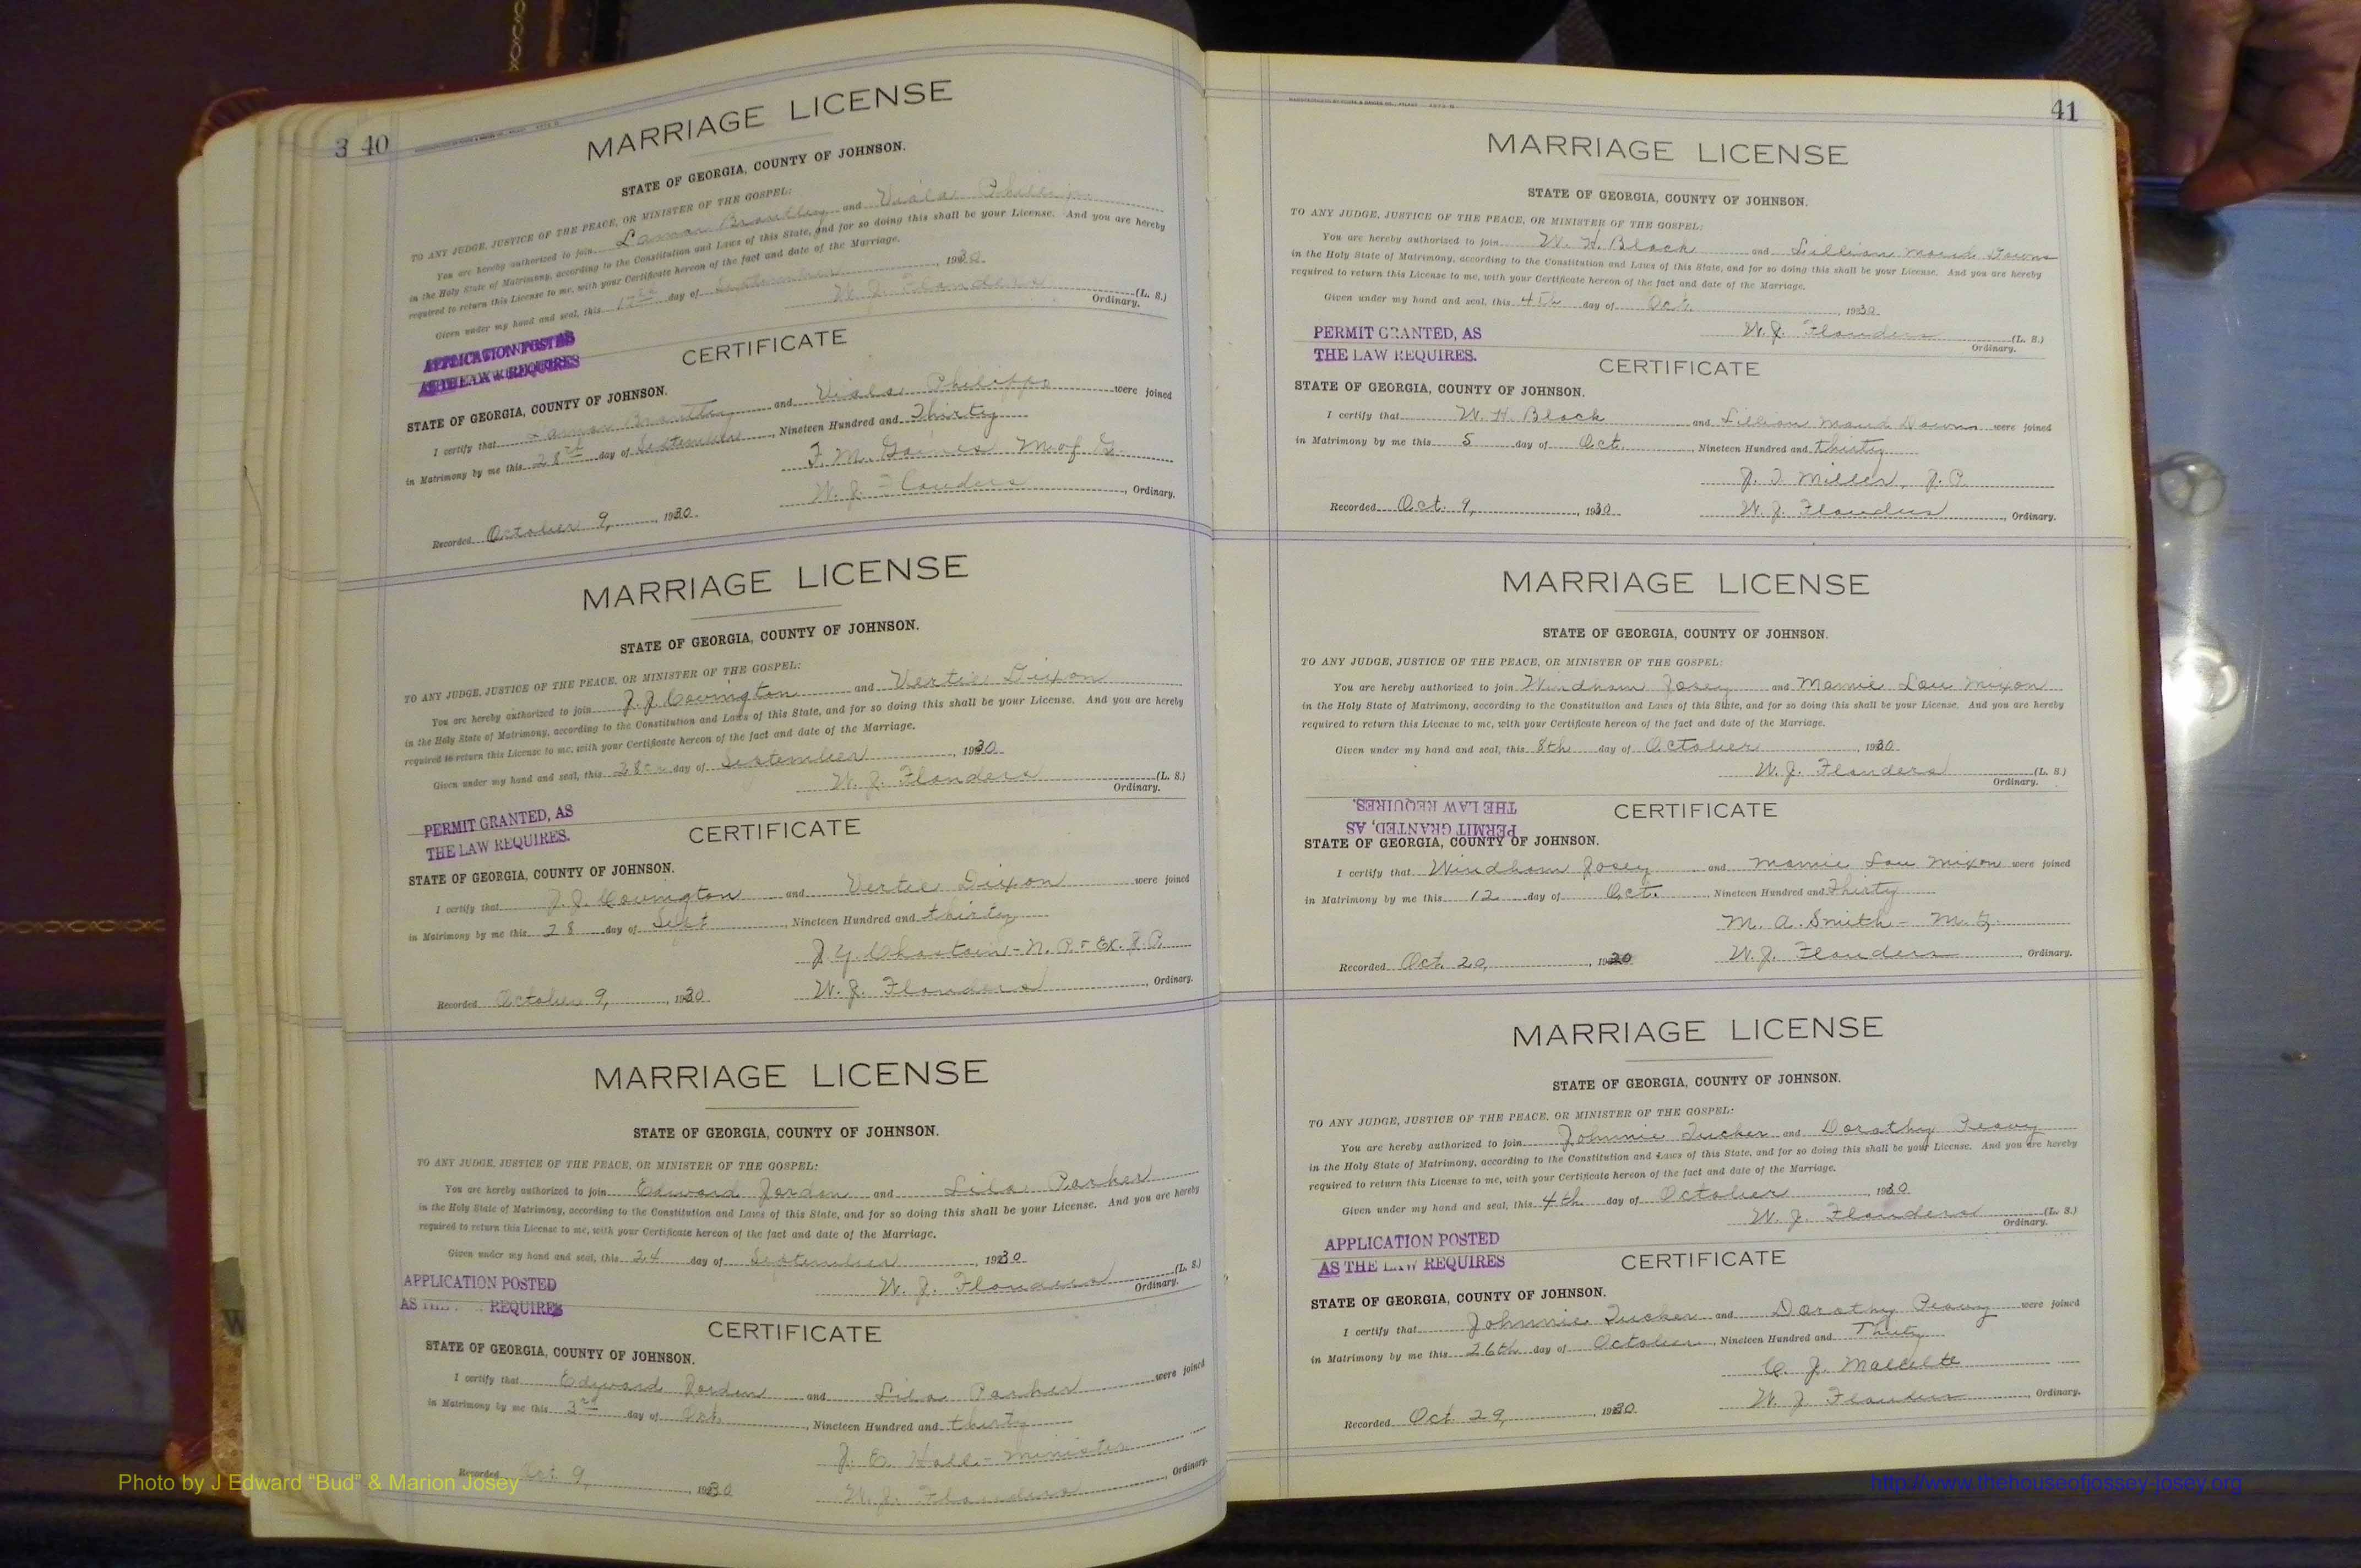 3 40
MARRIAGE LICENSE
STATE OF GEORGIA, COUNTY OF JOHNSON.
TO ANY JUDGE, JUSTICE OF THE PEACE, OR MINISTER OF THE GOSPEL:
You are hereby authorized to join Brantley and Viola
in the Holy State of Matrimony, according to the Constitution and Laws of this State, and for so doing this shall be your License. And you are hereby
required to return this License to me, with your Certificate hereon of the fact and date of the Marriage.
Given under my hand and seal, this 17th day of September, 1930
W. J. Flanders (L. S.)
Ordinary.
APPLICATION POSTED
AS THE LAW REQUIRES
CERTIFICATE
STATE OF GEORGIA, COUNTY OF JOHNSON.
I certify that Brantley and Viola Philipps were joined
in Matrimony by me this 28th day of September, Nineteen Hundred and Thirty
F. M. Gaines M of G.
W. J. Flanders, Ordinary.
Recorded October 9, 1930.
MARRIAGE LICENSE
STATE OF GEORGIA, COUNTY OF JOHNSON.
TO ANY JUDGE, JUSTICE OF THE PEACE, OR MINISTER OF THE GOSPEL:
You are hereby authorized to join J. J. Covington and Vertie Dixon
in the Holy State of Matrimony, according to the Constitution and Laws of this State, and for so doing this shall be your License. And you are hereby
required to return this License to me, with your Certificate hereon of the fact and date of the Marriage.
Given under my hand and seal, this 28th day of September, 1930.
W. J. Flanders (L. S.)
Ordinary.
PERMIT GRANTED, AS
THE LAW REQUIRES.
CERTIFICATE
STATE OF GEORGIA, COUNTY OF JOHNSON.
I certify that J. J. Covington and Vertie Dixon were joined
in Matrimony by me this 28 day of Sept, Nineteen Hundred and thirty
J. Y. Chastain - N. P. & Ex. J. P.
W. J. Flanders, Ordinary.
Recorded October 9, 1930
MARRIAGE LICENSE
STATE OF GEORGIA, COUNTY OF JOHNSON.
TO ANY JUDGE, JUSTICE OF THE PEACE, OR MINISTER OF THE GOSPEL:
You are hereby authorized to join Edward Jordan and Lila Parker
in the Holy State of Matrimony, according to the Constitution and Laws of this State, and for so doing this shall be your License. And you are hereby
required to return this License to me, with your Certificate hereon of the fact and date of the Marriage.
Given under my hand and seal, this 24 day of September, 1930
W. J. Flanders (L. S.)
Ordinary.
APPLICATION POSTED
AS THE REQUIRES
CERTIFICATE
STATE OF GEORGIA, COUNTY OF JOHNSON.
I certify that Edward Jorden and Lila Parker were joined
in Matrimony by me this 3rd day of Oct., Nineteen Hundred and thirty
J. E. Hall - Minister
W. J. Flanders, Ordinary.
Recorded Oct 9, 1930
41
MARRIAGE LICENSE
STATE OF GEORGIA, COUNTY OF JOHNSON.
TO ANY JUDGE, JUSTICE OF THE PEACE, OR MINISTER OF THE GOSPEL:
You are hereby authorized to join W. H. Black and Lillian Maud Downs
in the Holy State of Matrimony, according to the Constitution and Laws of this State, and for so doing this shall be your License. And you are hereby
required to return this License to me, with your Certificate hereon of the fact and date of the Marriage.
Given under my hand and seal, this 4th day of Oct., 1930
W. J. Flanders (L. S.)
Ordinary.
PERMIT GRANTED, AS
THE LAW REQUIRES.
CERTIFICATE
STATE OF GEORGIA, COUNTY OF JOHNSON.
I certify that W. H. Black and Lillian Maud Downs were joined
in Matrimony by me this 5 day of Oct., Nineteen Hundred and thirty
J. T. Miller, J. P.
W. J. Flanders, Ordinary.
Recorded Oct. 9, 1930
MARRIAGE LICENSE
STATE OF GEORGIA, COUNTY OF JOHNSON.
TO ANY JUDGE, JUSTICE OF THE PEACE, OR MINISTER OF THE GOSPEL:
You are hereby authorized to join Windham Josey and Mamie Lou Mixon
in the Holy State of Matrimony, according to the Constitution and Laws of this State, and for so doing this shall be your License. And you are hereby
required to return this License to me, with your Certificate hereon of the fact and date of the Marriage.
Given under my hand and seal, this 8th day of October, 1930.
W. J. Flanders (L. S.)
Ordinary.
PERMIT GRANTED, AS
THE LAW REQUIRES.
CERTIFICATE
STATE OF GEORGIA, COUNTY OF JOHNSON.
I certify that Windham Josey and Mamie Lou Mixon were joined
in Matrimony by me this 12 day of Oct., Nineteen Hundred and Thirty
M. A. Smith - M. G.
W. J. Flanders, Ordinary.
Recorded Oct. 20, 1930
MARRIAGE LICENSE
STATE OF GEORGIA, COUNTY OF JOHNSON.
TO ANY JUDGE, JUSTICE OF THE PEACE, OR MINISTER OF THE GOSPEL:
You are hereby authorized to join Johnnie Tucker and Dorothy Peavy
in the Holy State of Matrimony, according to the Constitution and Laws of this State, and for so doing this shall be your License. And you are hereby
required to return this License to me, with your Certificate hereon of the fact and date of the Marriage.
Given under my hand and seal, this 4th day of October, 1930
W. J. Flanders (L. S.)
Ordinary.
APPLICATION POSTED
AS THE LAW REQUIRES
CERTIFICATE
STATE OF GEORGIA, COUNTY OF JOHNSON.
I certify that Johnnie Tucker and Dorothy Peavy were joined
in Matrimony by me this 26th day of October, Nineteen Hundred and Thirty
C. J.
W. J. Flanders, Ordinary.
Recorded Oct 29, 1930.
Photo by J Edward “Bud” & Marion Josey
http://www.thehouseofjossey-josey.org